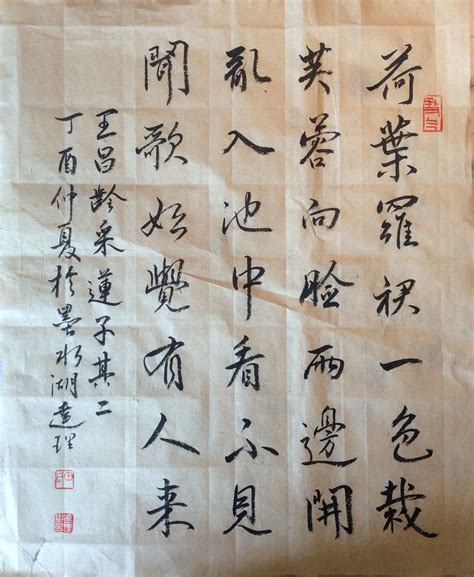 荷葉羅裙一色栽
芙蓉向臉兩邊開
亂入池中看不見
聞歌始覺有人来
王昌龄采蓮子其二
丁酉仲夏於墨水湖理